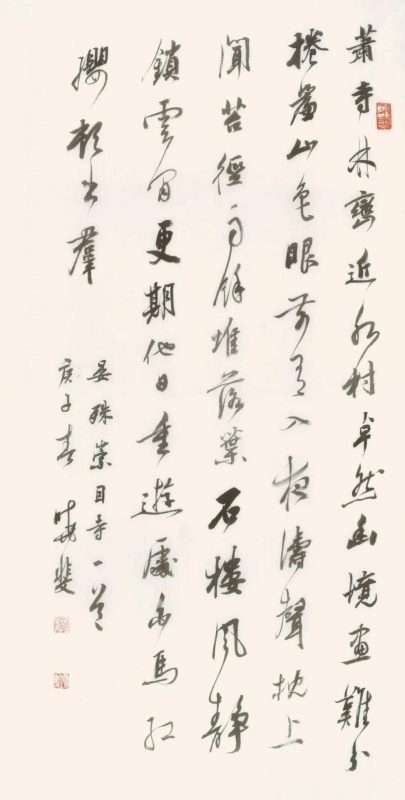 蕭寺林巒近水村卓然幽境畫難分
捲簾山色眼前入夜濤聲枕上
聞苔徑雨餘堆落葉石樓風靜
鎖雲間更期他日重遊處白馬紅
纓頓出羣
晏殊崇目寺一首
庚子春曉斐